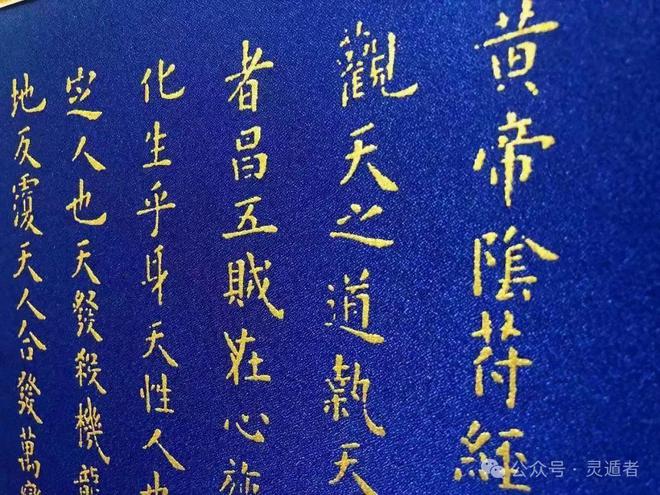 黄帝陰符經
觀天之道執天
者昌五賊在心施
化生乎身天性人也
定人也天發殺機龍
地反覆天人合發萬變
公众号·灵遁者